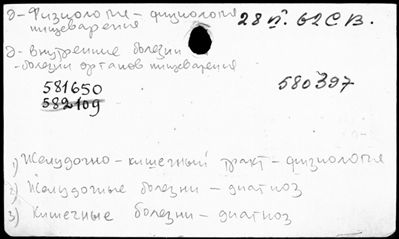 Э - Физиология - физиология
пищеварения
28 VI. 62 С В.
Э - внутренние болезни
- болезни органов пищеварения
581650
582109
580397
1) Желудочно - кишечный тракт - физиология
2) Желудочные болезни - диагноз
3) Кишечные болезни - диагноз